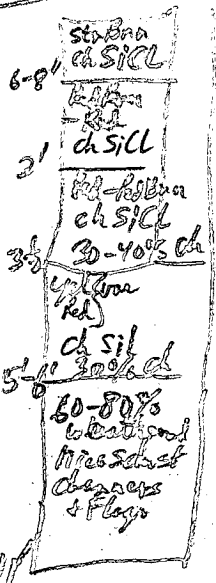 StrBrn
ch SiCL
6-8"
RdBrn
-Rd
ch SiCL
2'
Rd-RdBrn
ch SiCL
30-40% ch
3½
Yel
Red
ch SiL
30% ch
5'-6'
60-80%
weathered
Mica Schist
channers
+ Flags